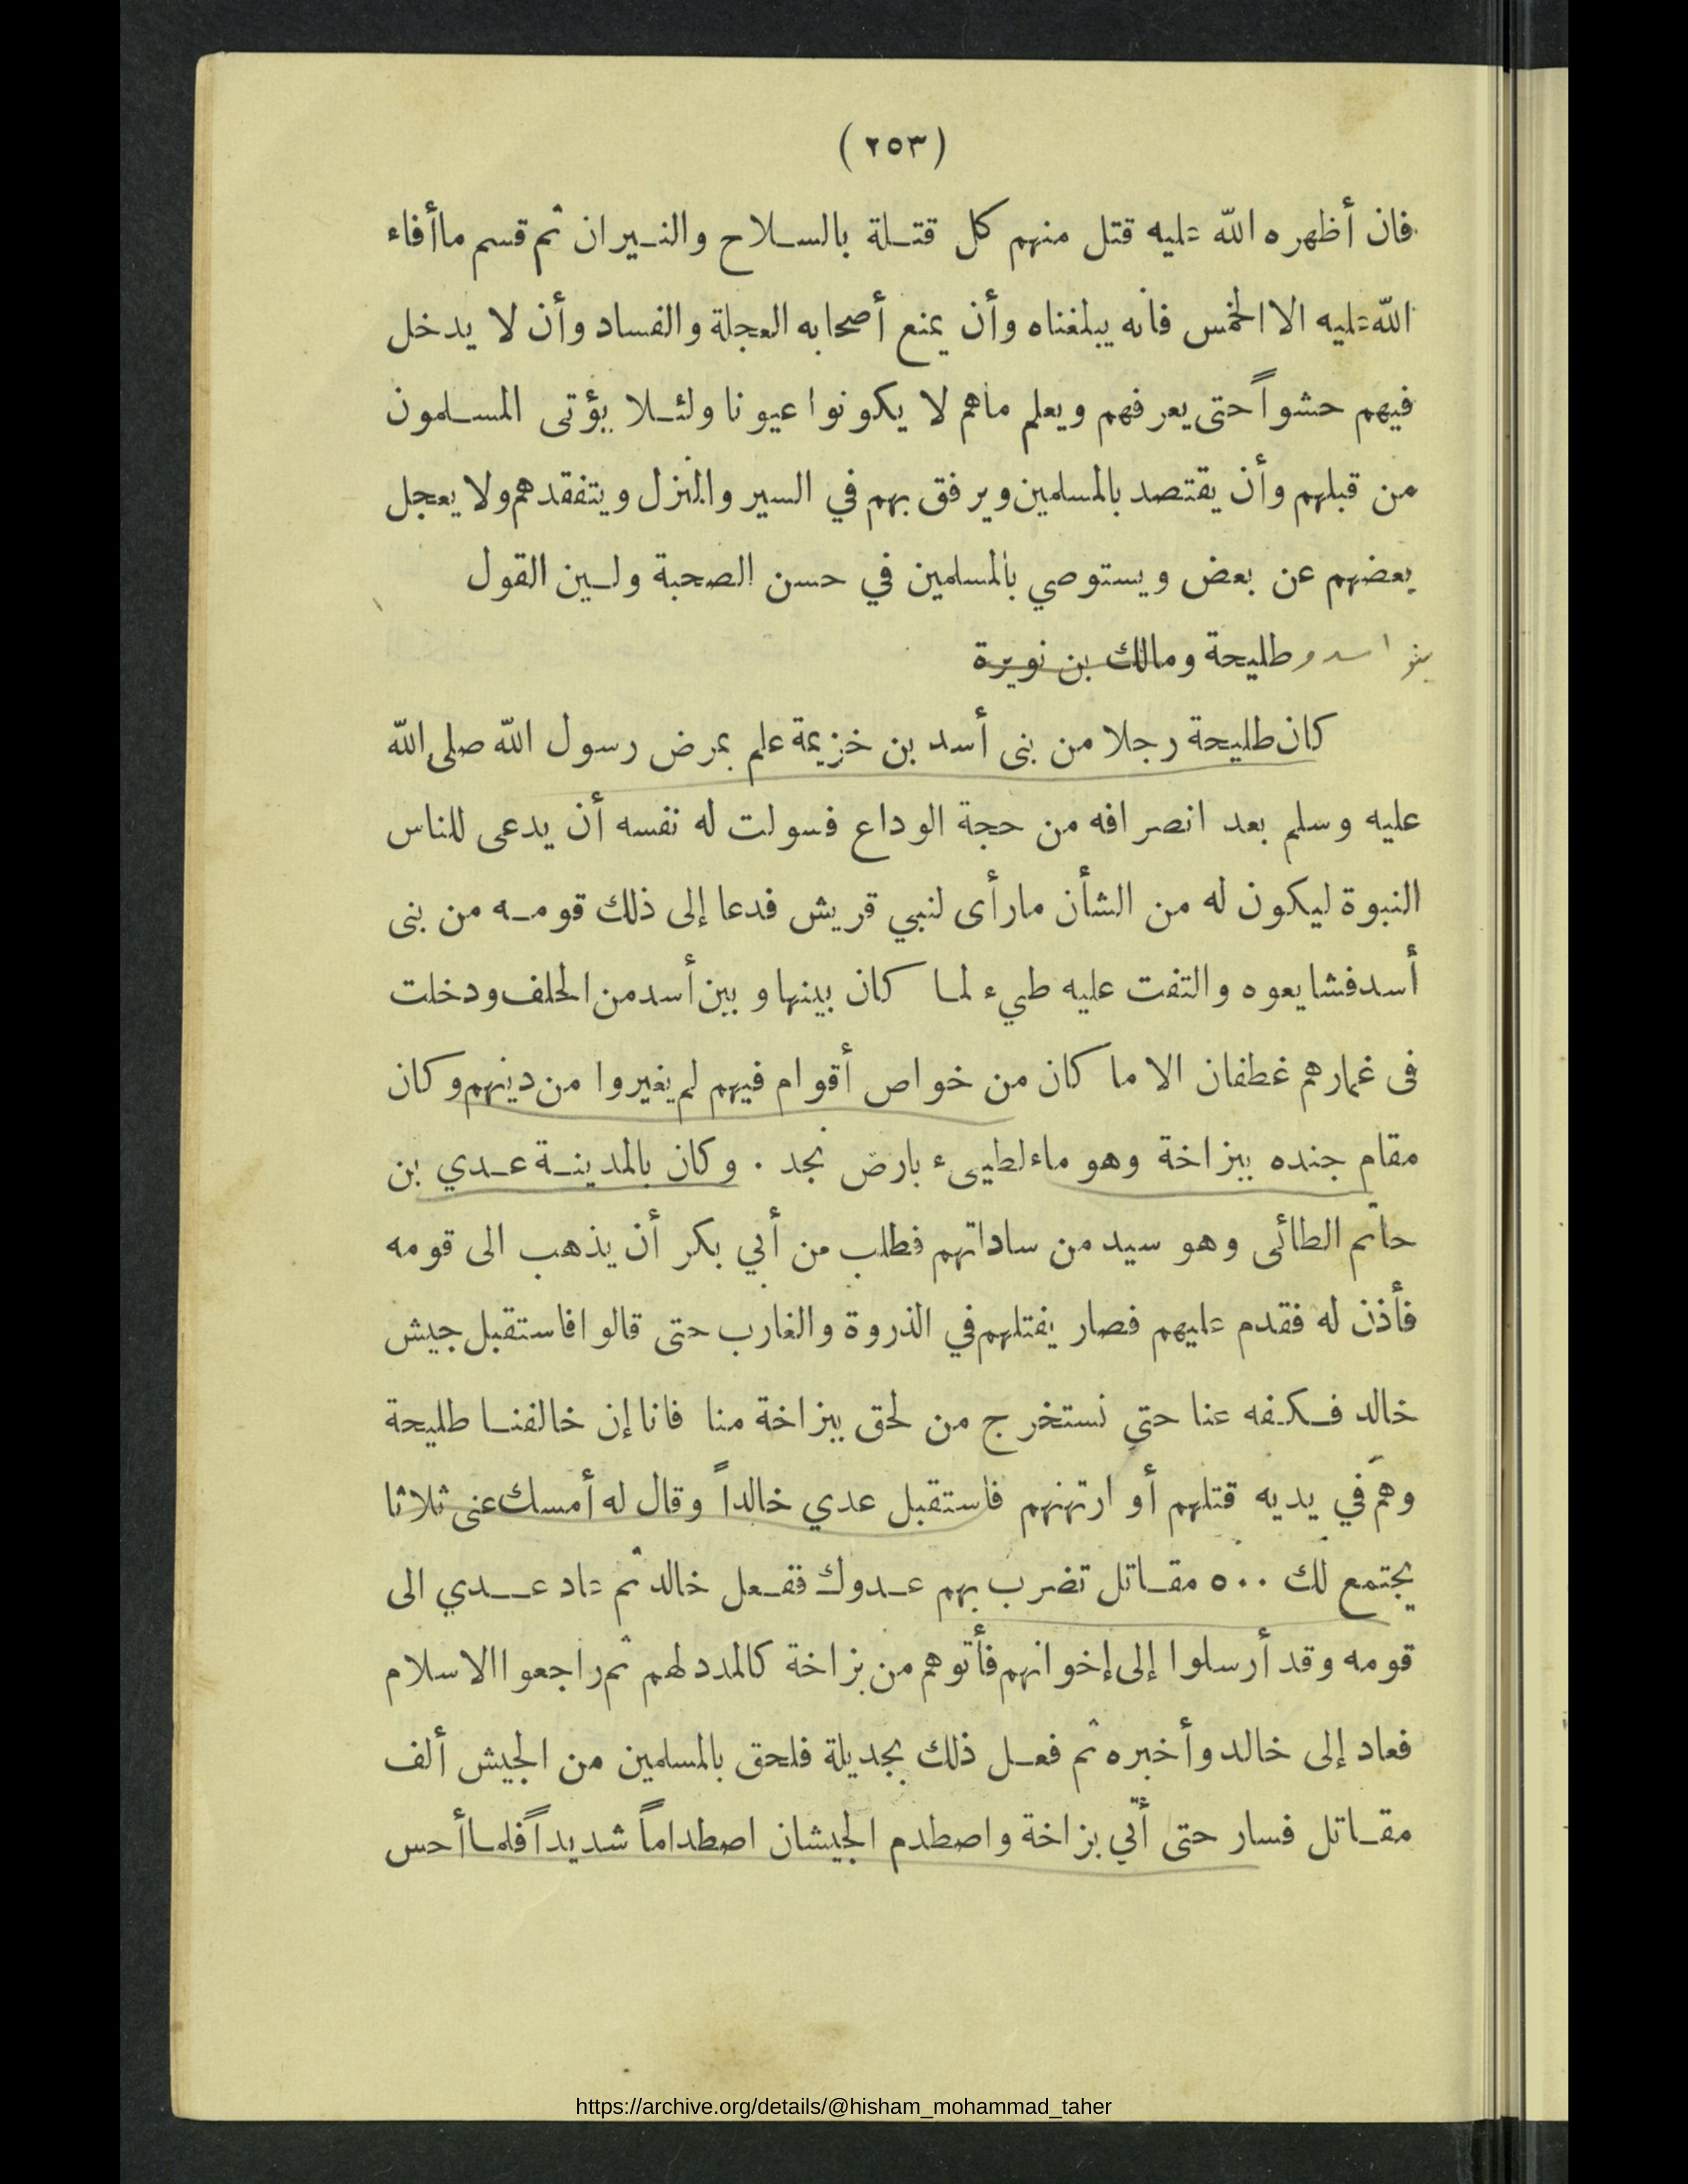 ( ٢٥٣ )
فان أظهره الله عليه قتل منهم كل قتلة بالسلاح والنيران ثم قسم ما أفاء
الله عليه الا الخمس فانه يبلغناه وأن يمنع أصحابه العجلة والفساد وأن لا يدخل
فيهم حشواً حتى يعرفهم ويعلم ماهم لا يكونوا عيونا ولئلا يؤتى المسلمون
من قبلهم وأن يقتصد بالمسلمين ويرفق بهم في السير والمنزل ويتفقدهم ولا يعجل
بعضهم عن بعض ويستوصي بالمسلمين في حسن الصحبة ولين القول
بنو اسد و طليحة ومالك بن نويرة
كان طليحة رجلا من بنى أسد بن خزيمة علم بمرض رسول الله صلى الله
عليه وسلم بعد انصرافه من حجة الوداع فسولت له نفسه أن يدعى للناس
النبوة ليكون له من الشأن مارأى لنبي قريش فدعا إلى ذلك قومه من بنى
أسد فشايعوه والتفت عليه طيء لما كان بينها وبين أسد من الحلف ودخلت
فى غمارهم غطفان الا ما كان من خواص أقوام فيهم لم يغيروا من دينهم وكان
مقام جنده ببزاخة وهو ماء لطيىء بارض نجد . وكان بالمدينة عدي بن
حاتم الطائى وهو سيد من ساداتهم فطلب من أبي بكر أن يذهب الى قومه
فأذن له فقدم عليهم فصار يفتلهم في الذروة والغارب حتى قالوا فاستقبل جيش
خالد فكفه عنا حتى نستخرج من لحق ببزاخة منا فانا إن خالفنا طليحة
وهم في يديه قتلهم أو ارتهنهم فاستقبل عدي خالداً وقال له أمسك عنى ثلاثا
يجتمع لك ٥٠٠ مقاتل تضرب بهم عدوك ففعل خالد ثم عاد عدي الى
قومه وقد أرسلوا إلى إخوانهم فأتوهم من بزاخة كالمدد لهم ثم راجعوا الاسلام
فعاد إلى خالد وأخبره ثم فعل ذلك بجديلة فلحق بالمسلمين من الجيش ألف
مقاتل فسار حتى أتي بزاخة واصطدم الجيشان اصطداماً شديداً فلما أحس
https://archive.org/details/@hisham_mohammad_taher